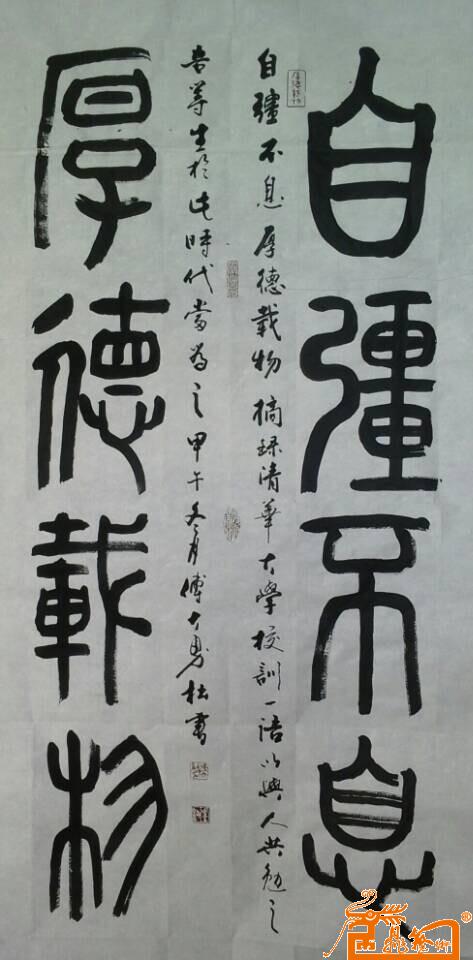 自彊不息
厚德載物
自彊不息厚德載物摘録清華大學校訓一語以與人共勉之
吾等生於此時代當為之甲午冬月傅大勇拙書